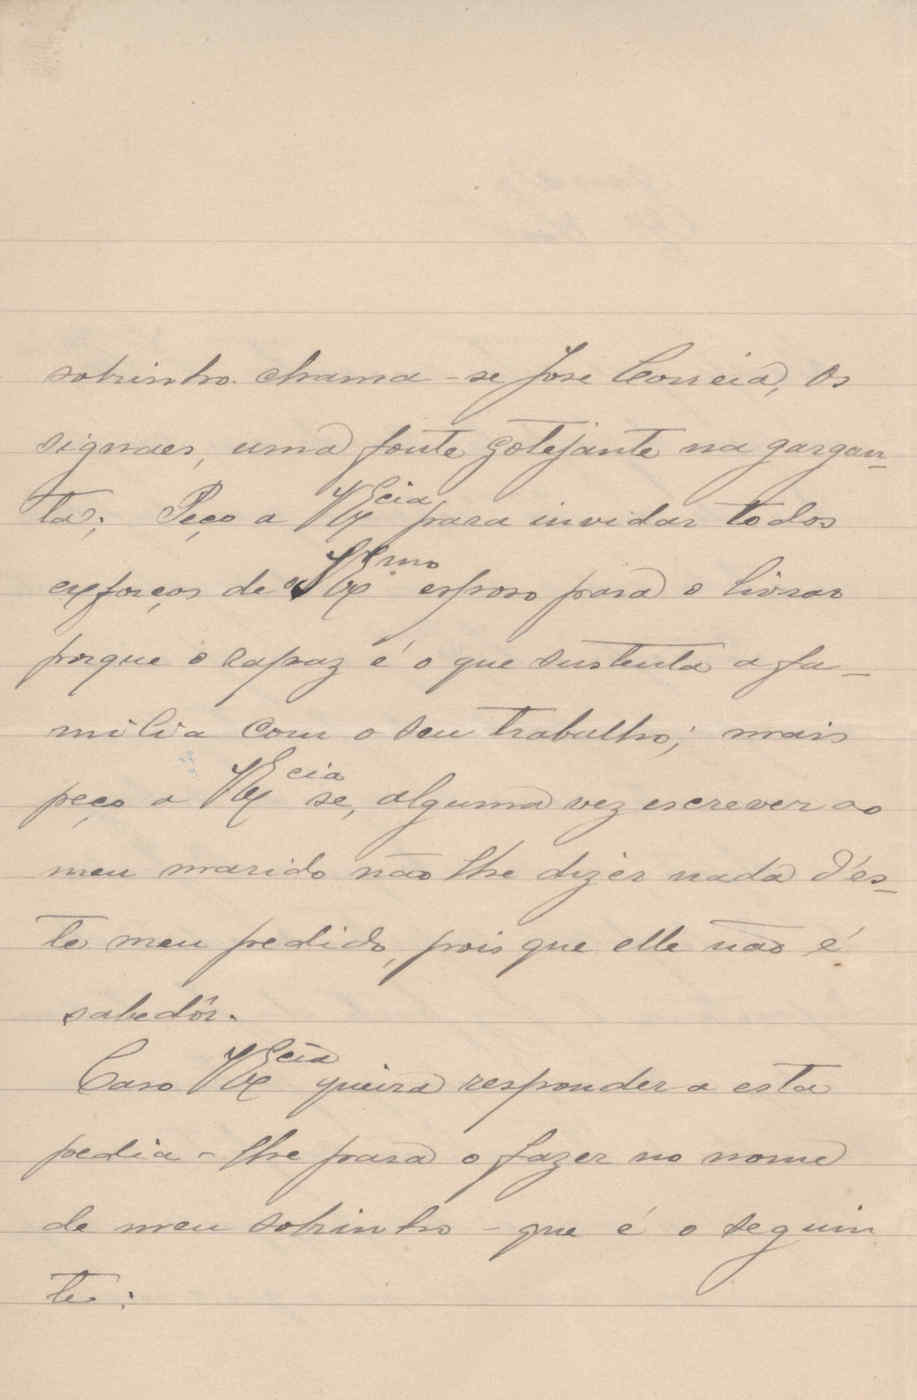 sobrinho. chama-se José Correia, Os
signaes, uma fonte gotejante na gargan-
ta; Peço a V Excia para invidar todos
exforços de S Exmo esposo para o livrar
porque o rapaz é o que sustenta a fa-
milia com o seu trabalho; mais
peço a V Excia se, alguma vez escrever ao
meu marido não lhe dizer nada d'és-
te meu pedido, pois que elle não é
sabedôr.
Caso V Excia queira responder a esta
pedia-lhe para o fazer no nome
de meu sobrinho - que é o seguin
te: